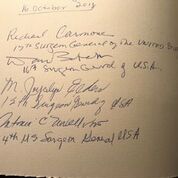 16 October 2018
Richard Carmona
17th Surgeon General of the United Sta
16th Surgeon General of U.S.A.
M. Joycelyn Elders
15th Surgeon General USA
Antonia C. Novello
14th US Surgeon General USA